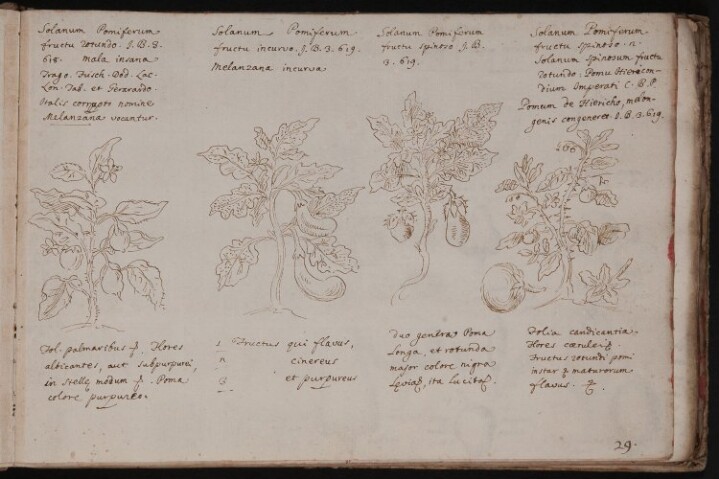 Solanum Pomiferum
fructu rotundo. J. B. 3.
618. mala insana
Trago. Fusch. Dod. Lac.
Lon. Tab. et Gerardo.
Italis corrupto nomine
Melanzana vocantur.
Solanum Pomiferum
fructu incurvo. J. B. 3. 619.
Melanzana incurva
Solanum Pomiferum
fructu spinoso J. B.
3. 619.
Solanum Pomiferum
fructu spinoso. n.
Solanum spinosum fructu
rotundo. Pomu Hierocon-
dium Imperati C. B. P.
Pomum de Hiericho, melon-
genis congeneres. J. B. 3. 619.
Fol. palmaribus Flores
albicantes, aut subpurpurei,
in stellę modum Poma
colore purpureo.
1 Fructus qui flavus,
2 cinereus
3 et purpureus
duo genera Poma
Longa, et rotunda
maior colore nigra
ita Lucita
Folia candicantia.
Flores cœrulei
Fructus rotundi pomi
instar maturorum
flavus.
29.